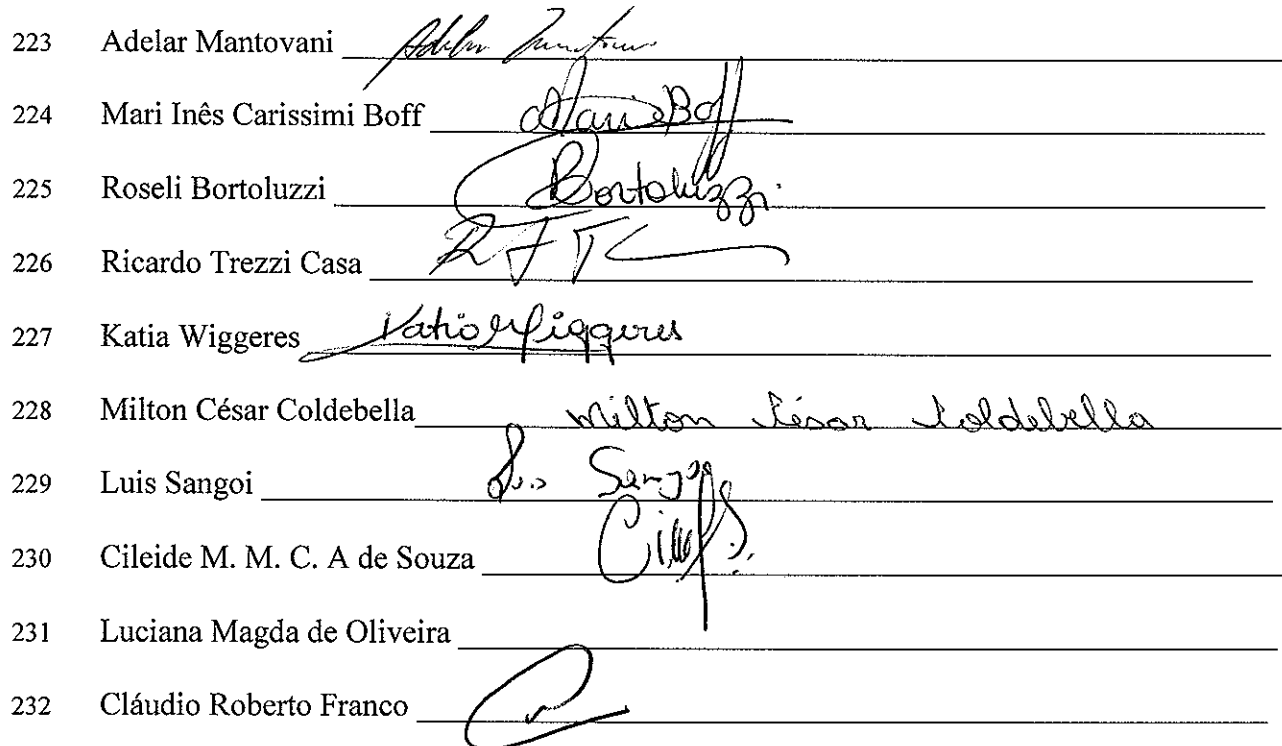 223 Adelar Mantovani
224 Mari Inês Carissimi Boff Mari Boff
225 Roseli Bortoluzzi Bortoluzzi
226 Ricardo Trezzi Casa
227 Katia Wiggeres Katia Wiggeres
228 Milton César Coldebella Milton César Coldebella
229 Luis Sangoi
230 Cileide M. M. C. A de Souza
231 Luciana Magda de Oliveira
232 Cláudio Roberto Franco